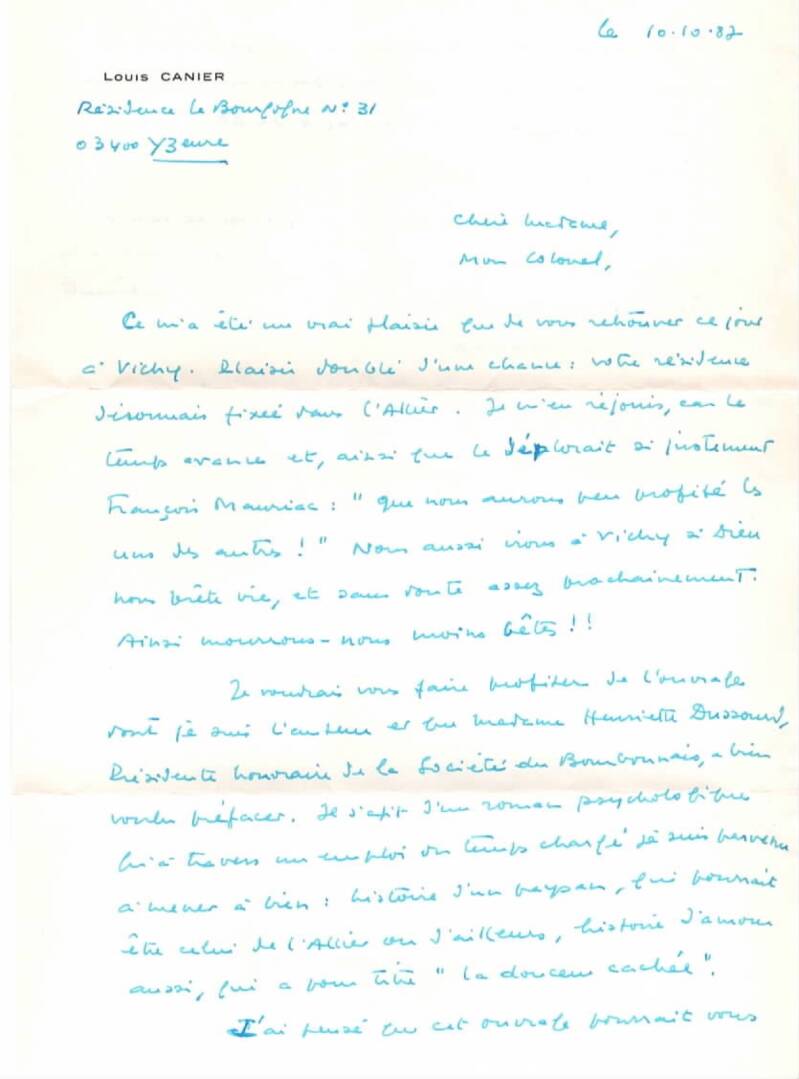 le 10.10.82
Louis CANIER
Résidence le Bourgogne N° 31
03400 Yzeure
Chère Madame,
Mon Colonel,
Ce m'a été un vrai plaisir que de vous retrouver ce jour
à Vichy. Plaisir doublé d'une chance : votre résidence
désormais fixée dans l'Allier. Je m'en réjouis, car le
temps avance et, ainsi que le déplorait si justement
François Mauriac : " que nous aurons peu profité les
uns des autres ! " Nous aussi irons à Vichy si Dieu
nous prête vie, et sans doute assez prochainement.
Ainsi mourrons-nous moins bêtes !!
Je voudrais vous faire profiter de l'ouvrage
dont je suis l'auteur et que Madame Henriette Dussourd,
Présidente honoraire de la Société du Bourbonnais, a bien
voulu préfacer. Il s'agit d'un roman psychologique
qu'à travers un emploi du temps chargé je suis parvenu
à mener à bien : histoire d'un paysan, qui pourrait
être celui de l'Allier ou d'ailleurs, histoire d'amour
aussi, qui a pour titre " la douceur cachée ".
J'ai pensé que cet ouvrage pourrait vous